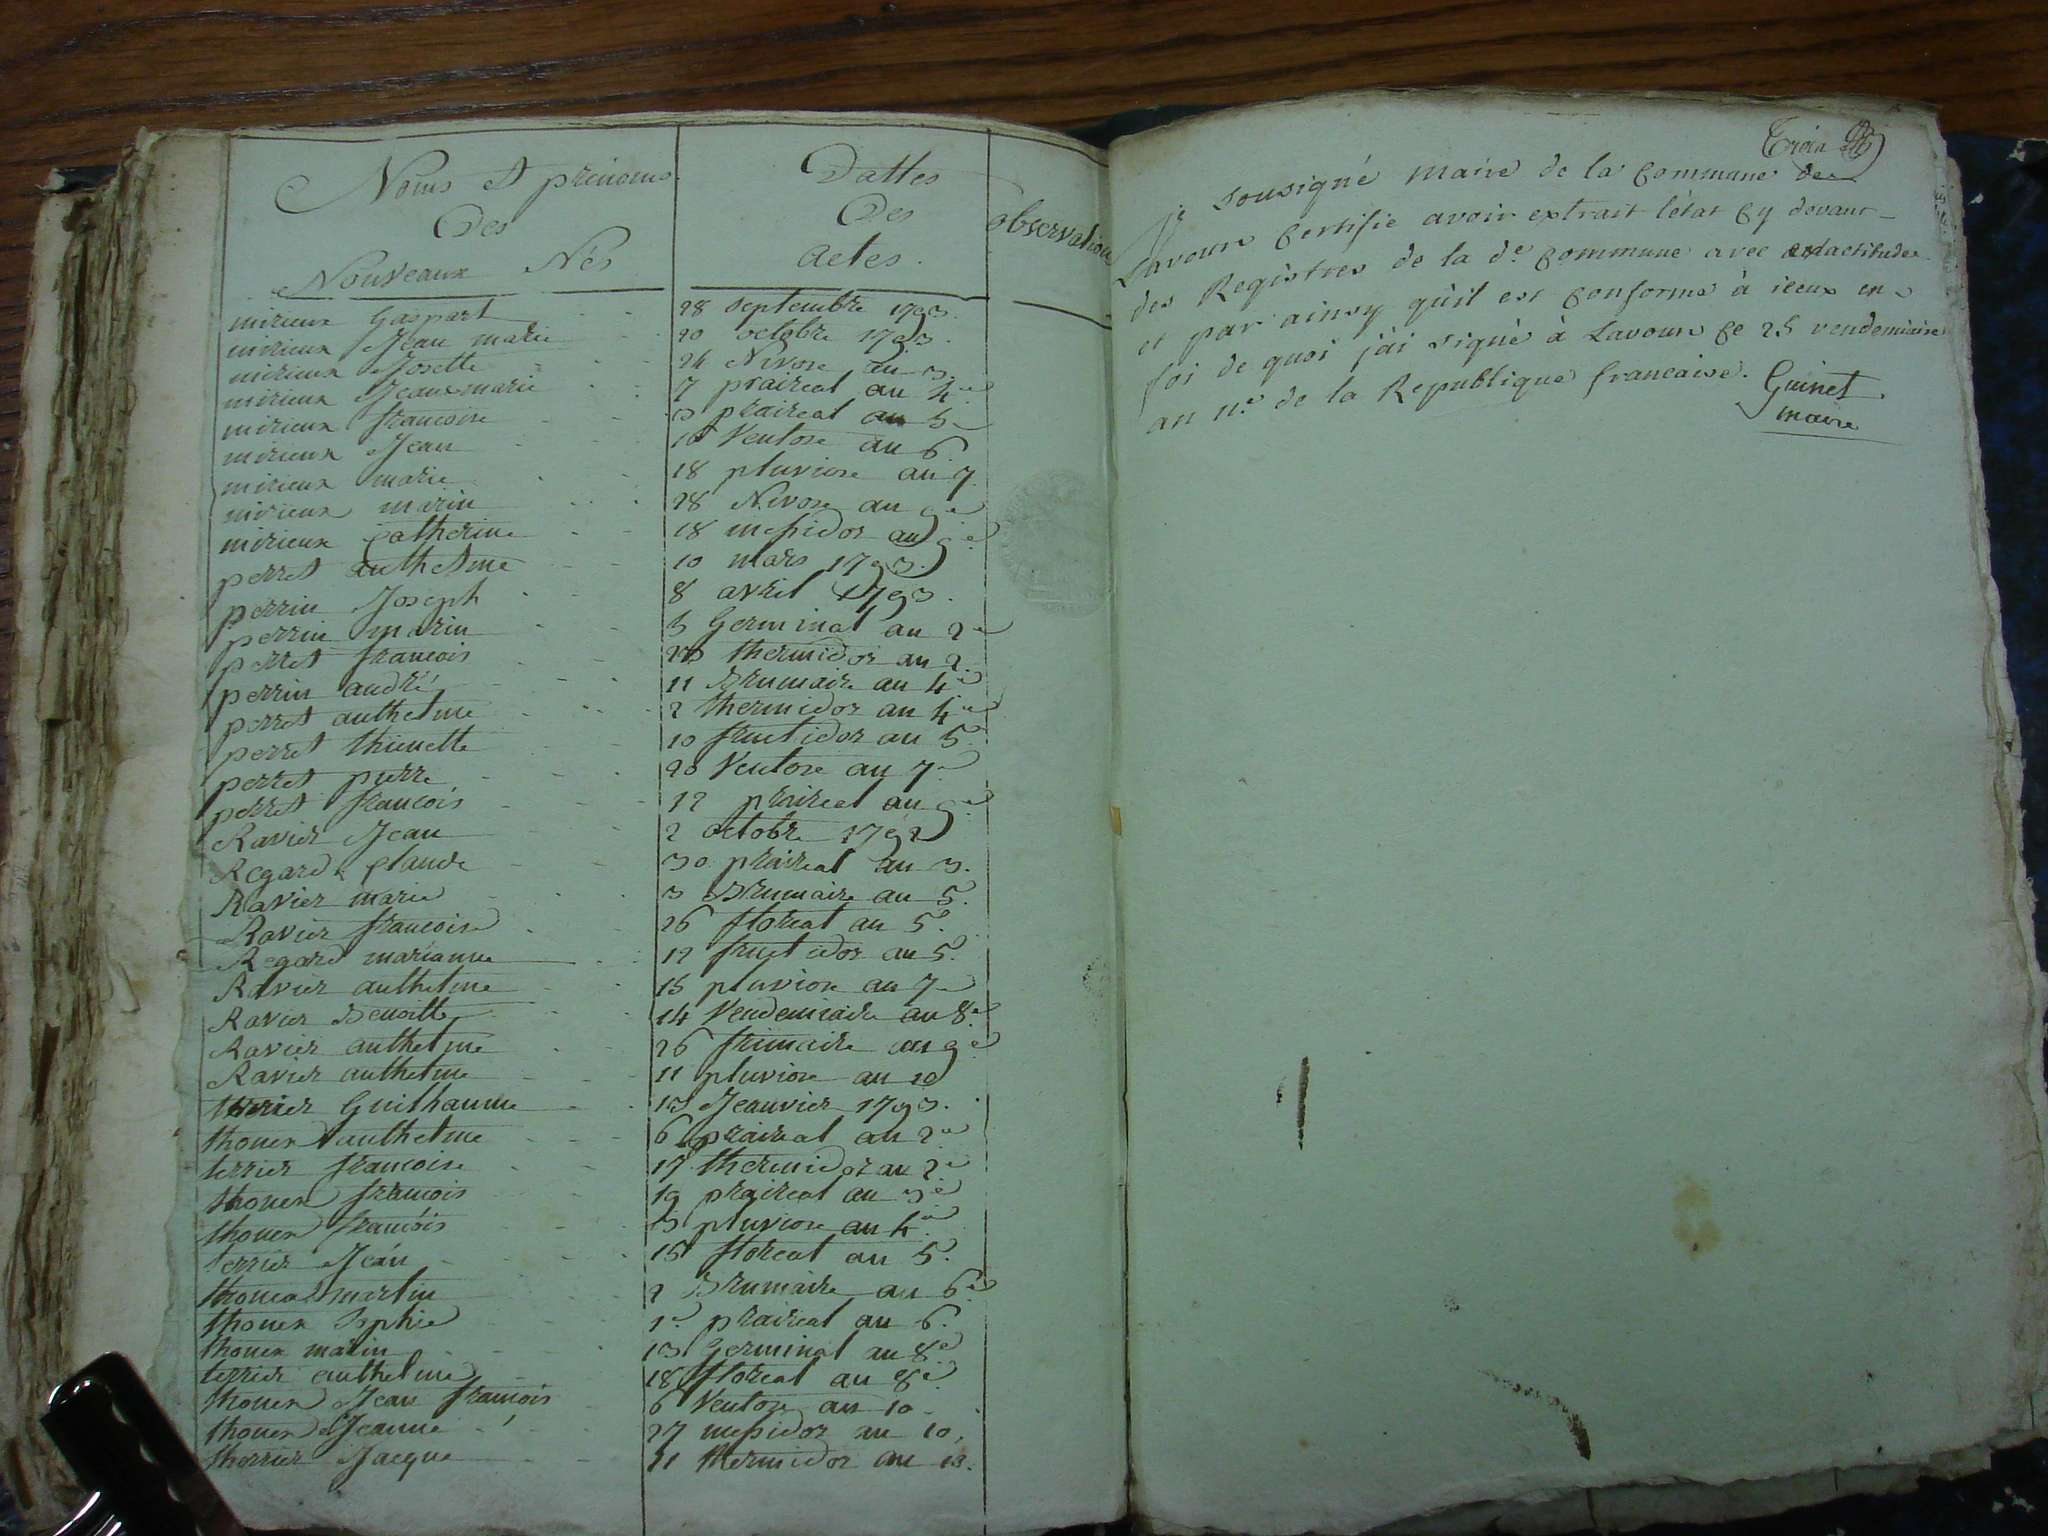 Noms et prénoms
Des
Nouveaux Nés
Dattes
Des
actes.
observations
mirieux Gaspart 28 septembre 1793.
mirieux Jean marie 20 octobre 1793.
mirieux Josette 24 Nivose an 3.
mirieux Jeanemarie 7 praireal an 4e
mirieux francoise 3 praireal an 5e
mirieux Jean 16 Ventose an 6.
mirieux marie 18 pluviose an 7
mirieux marin 28 Nivose an 9e
mirieux Catherine 18 messidor an 9e
perret anthelme 10 mars 1793.
perrin Joseph 8 avril 1793.
perrin marin 5 Germinal an 2e
perret francois thermidor an 2.
perrin andré 11 Brumaire an 4e
perret anthelme 2 thermidor an 4e
perret thienette 10 fructidor an 5e
perret pierre 20 Ventose an 7e
perret francois 12 praireal an 9e
Ravier Jean 2 octobre 1792
Regard Claude 30 praireal an 3.
Ravier marie 3 Brumaire an 5.
Ravier francoise 26 floreal an 5e.
Regard marianne 12 fructidor an 5e.
Ravier anthelme 15 pluviose an 7e
Ravier Benoitte 14 Vendemiaire an 8e
Ravier anthelme 26 frimaire an 9e
Ravier anthelme 11 pluviose an 10
Guilhaume 13 Jeanvier 1793.
thouex anthelme 6 praireal an 2e
terrier francoise 17 thermidor an 2e
thouex francois 19 praireal an 3e
thouex francois 5 pluviose an 4e
terrier Jean 15 floreal an 5e.
thouex martin 2 Brumaire an 6e
thouex Sophie 1er praireal an 6.
thouex marin 13 Germinal an 8e
terrier anthelme 18 floreal an 8e
thouex Jean francois 6 Ventose an 10
thouex Jeanne 27 messidor an 10.
therrier Jacque 11 thermidor an 10.
Je sousigné maire de la Commune de
Lavours Certifie avoir extrait l'état Cy devant
des Registres de la de Commune avec exdactitude
et par ainsy qu'il est Conforme à iceux en
foi de quoi j'ai signé à Lavours Ce 25 vendemiaire
an 11e de la Republique francaise.
Guinet
maire